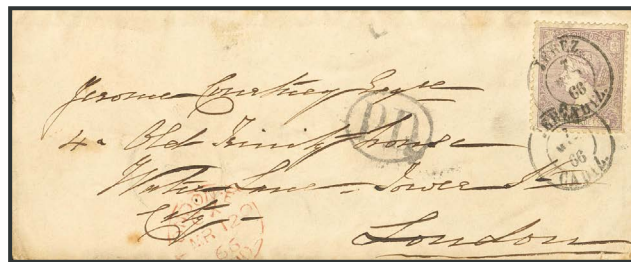 JEREZ
7
66
CADIZ
JEREZ
7
66
CADIZ.
Jerome Courtney Esqre
PD
4a Old Trinity house
Water Lane - Tower St
City -
London
MR 12
66